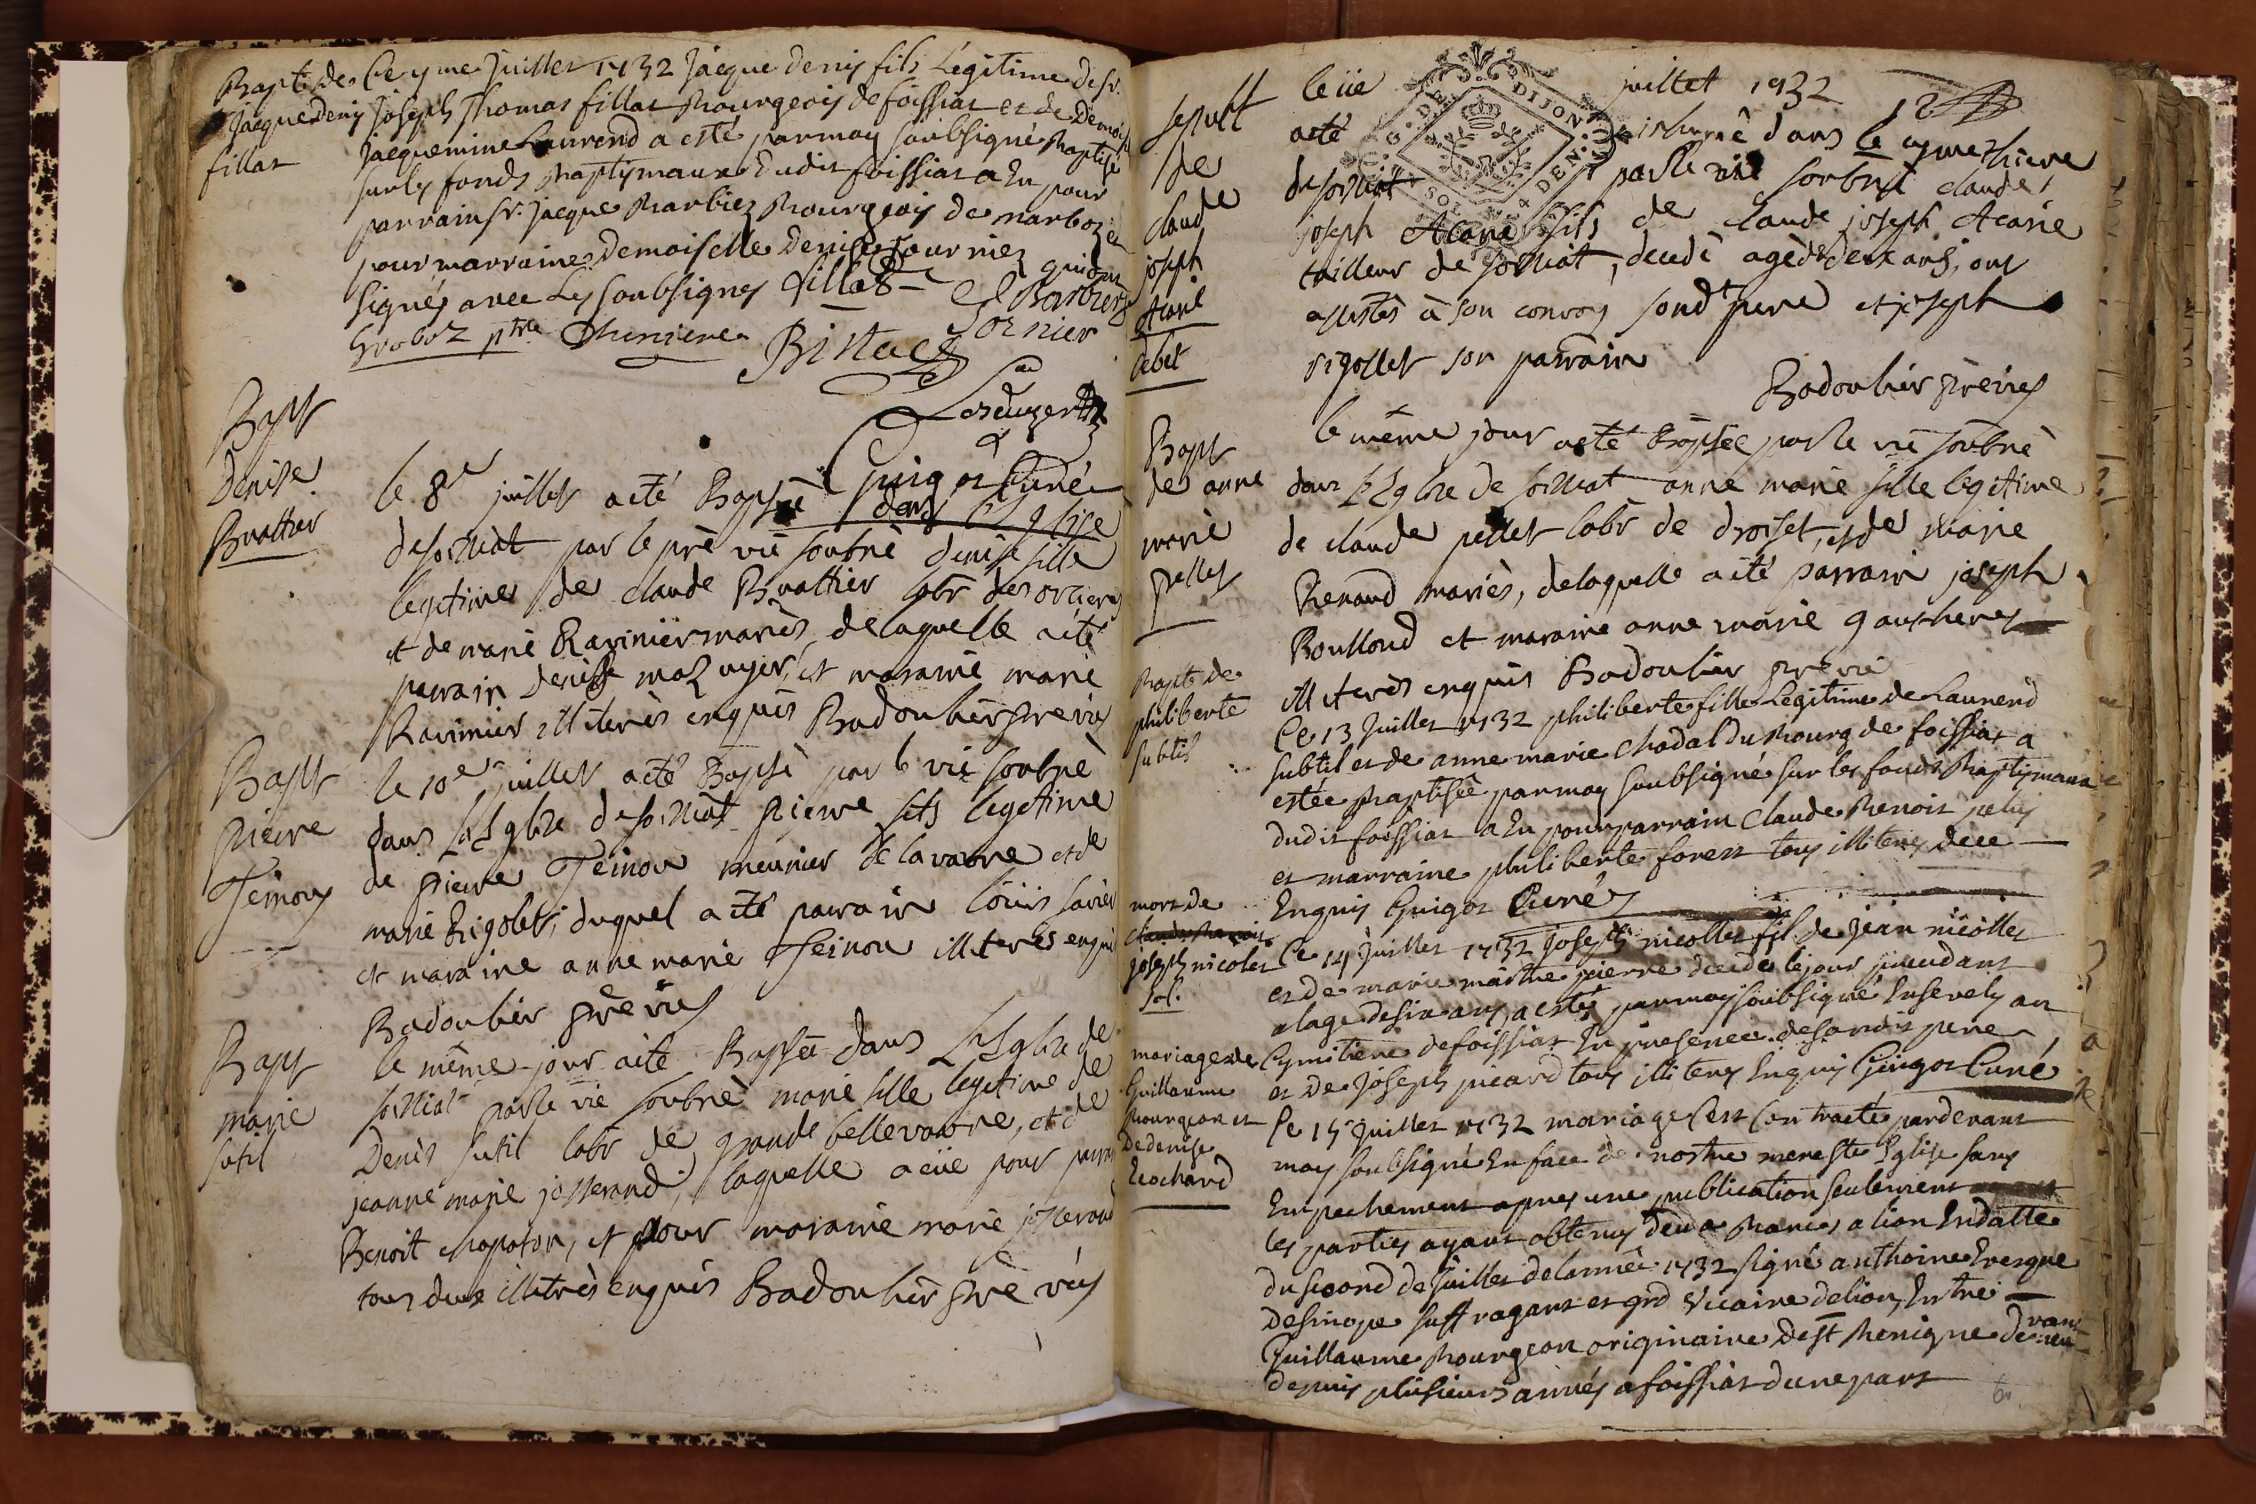 Bapt. de
Jacque Denis
fillat
Ce 7me Juillet 1732 Jacque denis fils Legitime de sr.
Joseph Thomas fillat Bourgeois de foissiat et de Demois
Jacquemine Laurend a esté par moy soubsigné Baptisé
sur les fonds Baptismaux dudit foissiat a Eu pour
parrain sr. Jacque Barbiez Bourgeois de marboz et
pour marraine Demoiselle denise fournier qui ont
signés avec Les soubsignes fillat C Barbier
Groboz ptre fornier
Guigot Curé
Bapt
Denise
Buattier
le 8e juillet a eté Baptsé dans l'Eglise
de forniat par le prè vic soubnè denise fille
legitime de claude Buattier labr des orcieres
et de marie Ravinier mariès, de laquelle a été
parrain denise mazuyer, et maraine marie
Ravinier illiterés enquis Badoulier prè vic
Bapt
pierre
Teinou
le 10e juillet a eté Baptsè par le vic soubnè
dans L'Eglise de forniat pierre fils legitime
de pierre Teinou meunier de lavavre et de
marie Rigolet, duquel a eté parrain Loüis
et maraine anne marie Teinou illiterés enquis
Badoulier prè vic
Bapt
marie
sutil
le même jour a eté Baptsée dans L'Eglise de
forniat par le vic soubnè marie fille legitime de
Denis sutil labr de grande bellevavre, et de
jeanne marie josserand, laquelle a eüe pour parrain
Benoit chapoton, et pour maraine marie josserand
tous deux illitrés enquis Badoulier prè vic
sepult
de
claude
joseph
Acarie
Debet
le iie juillet 1732
a eté inhumé dans le cymethiere
de forniat par le vic soubné claude
joseph Acarie fils de claude joseph Acarie
tailleur de forniat, decedé agè de deux ans, ont
assistès à son convoy sondt pere et joseph
rigollet son parrain
Badoulier prè vic
Bapt
de anne
marie
pellet
le même jour a eté Baptsée par le vic soubnè
dans L'Eglise de forniat anne marie fille legitime
de claude pellet labr de droiset, et de marie
Renaud mariès, de laquelle a eté parrain joseph
Boulloud et maraine anne marie
illiterés enquis Badoulier prè vic
Bapt. de
philiberte
subtil
Ce 13 Juillet 1732 philiberte fille Legitime de Laurend
subtil et de anne marie Chadal du Bourg de foissiat a
estée Baptisée par moy soubsigné sur les fonds Baptismaux
dudit foissiat a Eu pour parrain Claude Benoit
et marraine philiberte forest tous illiteres de ce
Enquis Guigot Curé
mort de
Joseph nicolet
Ce 14 Juillet 1732 Joseph nicollet fils de Jean nicollet
et de marie maitre pierre decedé le jour precedant
a lage de six ans, a esté par moy soubsigné Ensevely au
Cymitiere de foissiat En presence de sondit pere
et de Joseph picard tous illiteres Enquis Guigot Curé
mariage de
Guillaume
Bourgeon et
De denise
Brochard
Ce 15 Juillet 1732 mariage sest Contracté pardevant
moy soubsigné En face de nostre mere ste Eglise sans
Empechement apres une publication seulement
les parties ayant obtenus deux Bancs a lion En datte
du second de Juillet de lanneé 1732 signé anthoine Evesque
de sinope suffragant et grd vicaire de lion, Entre
Guillaume Bourgeon originaire de st Benigne demeurant
depuis plusieurs anneés a foissiat dune part